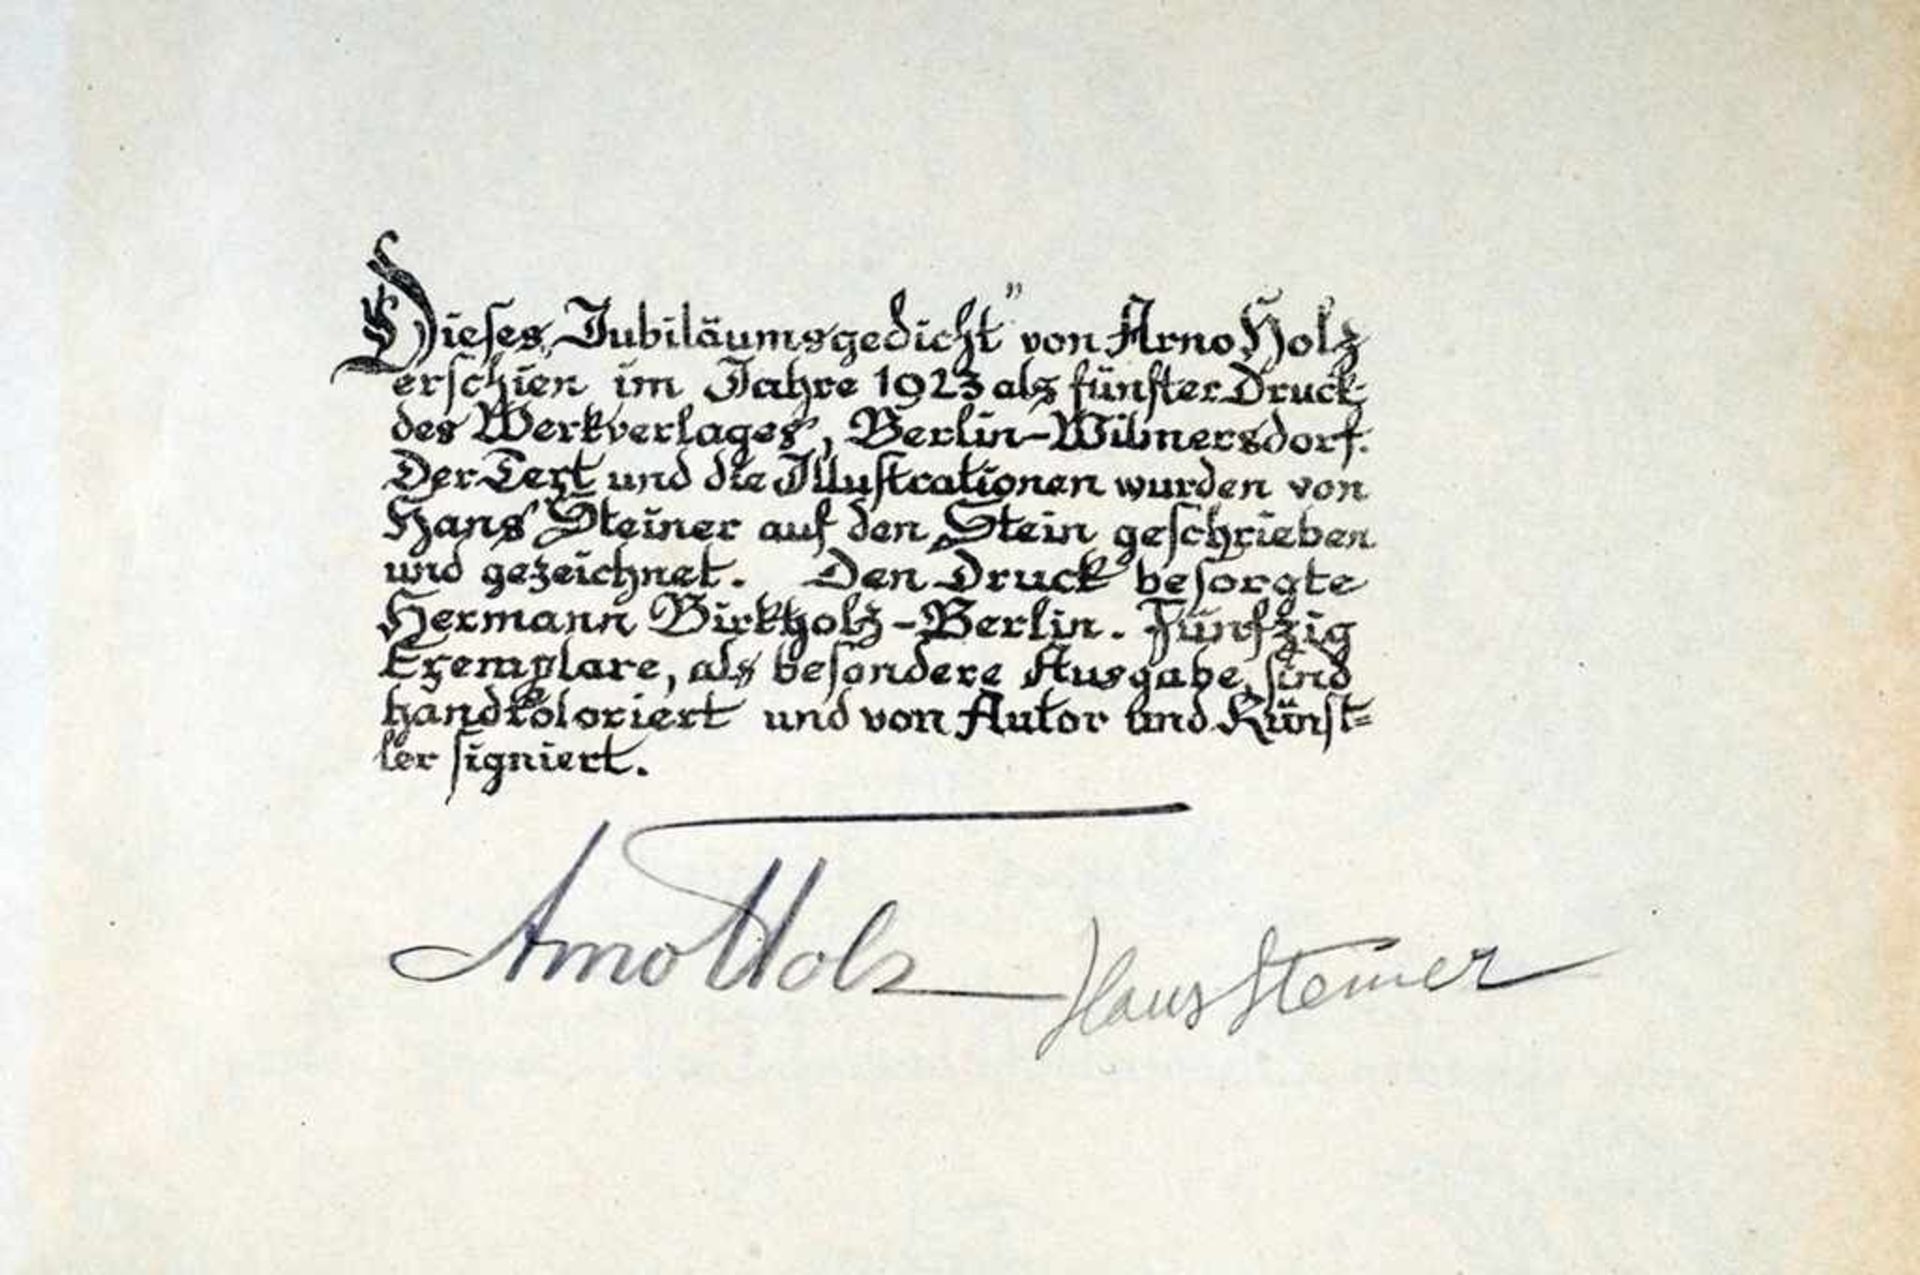 Dieses „Jubiläumsgedicht” von Arno Holz
erschien im Jahre 1923 als fünfter Druck
des Werkverlages, Berlin-Wilmersdorf.
Der Text und die Illustrationen wurden von
Hans Steiner auf den Stein geschrieben
und gezeichnet. Den Druck besorgte
Hermann Birkholz-Berlin. Fünfzig
Exemplare, als besondere Ausgabe, sind
handkoloriert und von Autor und Künst-
ler signiert.
Arno Holz Hans Steiner